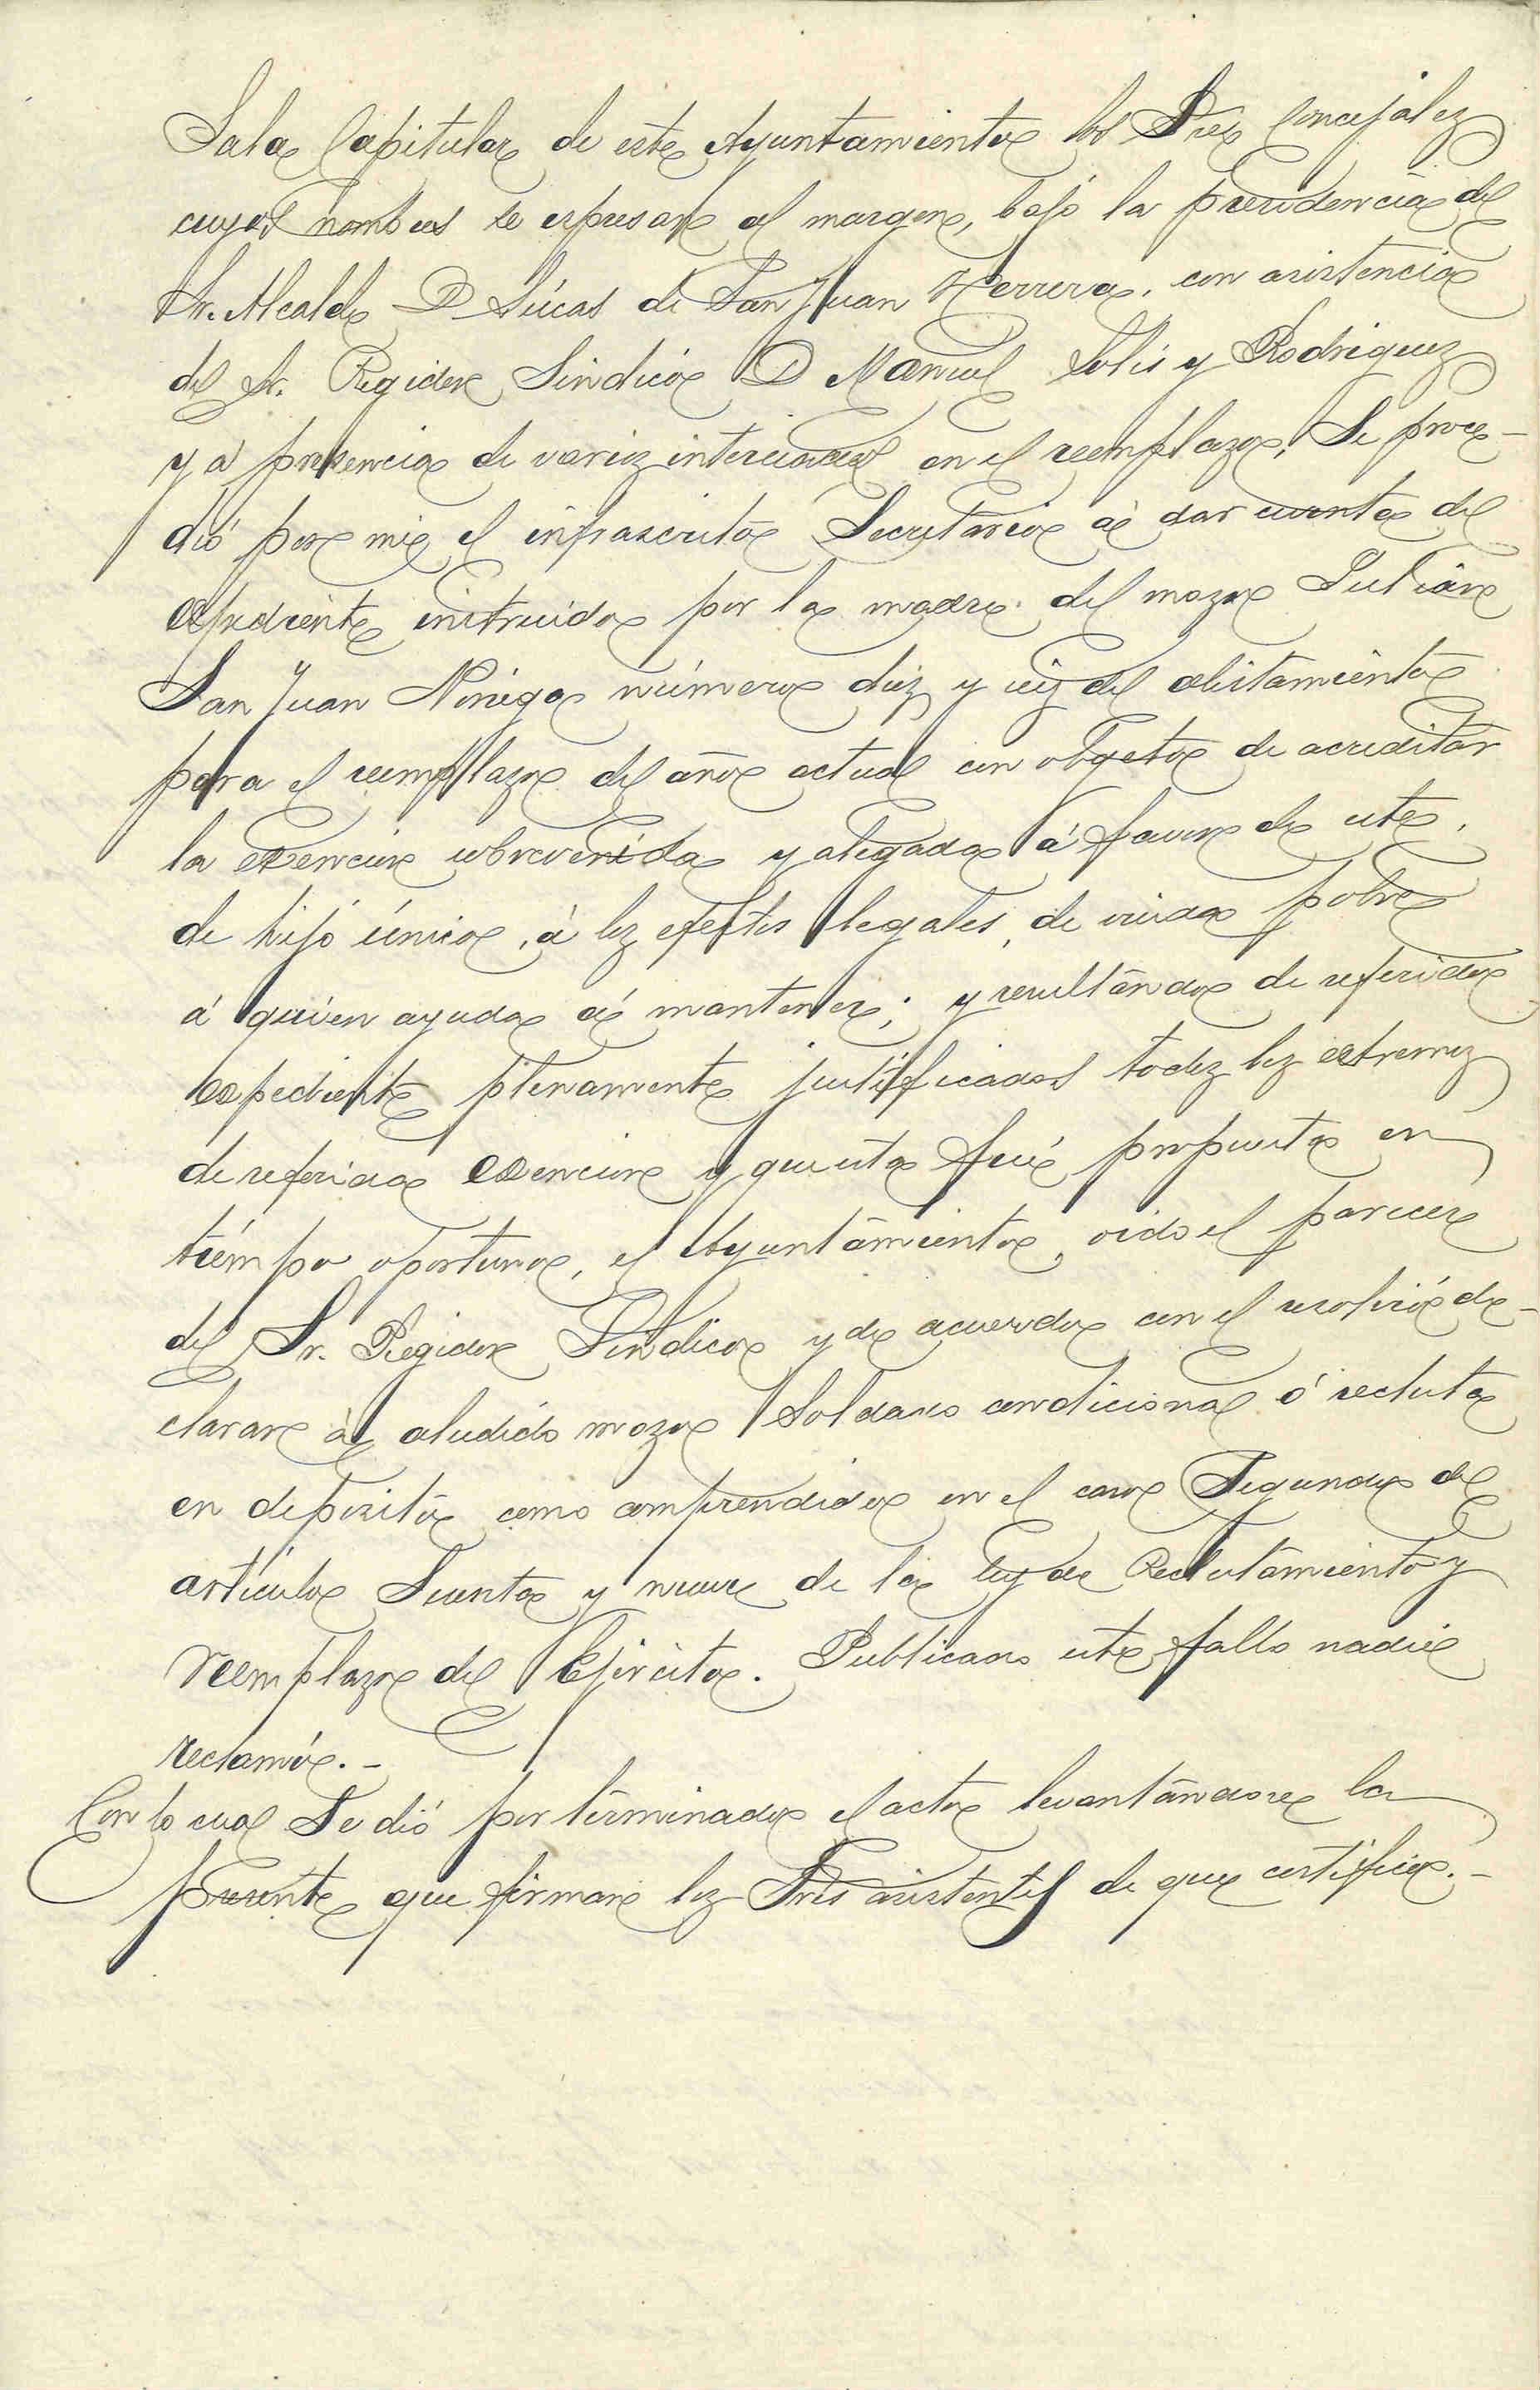 Sala Capitular de este Ayuntamiento los Sres Concejales
cuyos nombres se espresan al margen, bajo la presidencia del
Sr. Alcalde D Lúcas de San Juan Herrera, con asistencia
del Sr. Regidor Sindico D Manuel Solis y Rodriguez
y a presencia de varios interesados en el reemplazo, Se proce-
dió por mi el infrascrito Secretario á dar cuenta del
espediente instruido por la madre del mozo Julián
San Juan Noriega número diez y seis del alistamiento
para el reemplazo del año actual con objeto de acreditar
la exencion sobrevenida y alegada á favor de este,
de hijo único, á los efectos legales, de viuda pobre
á quien ayuda á mantener; y resultando de referido
espediente plenamente justificados todos los extremos
de referida exencion y que esta fué propuesta en
tiempo oportuno, el Ayuntamiento, oido el parecer
del Sr. Regidor Sindico y de acuerdo con el resolvió de-
clarar al aludido mozo Soldado condicional ó recluta
en depósito como comprendido en el caso Segundo del
artículo Sesenta y nueve de la ley de Reclutamiento y
reemplazo del Ejército. Publicado este fallo nadie
reclamó. -
Con lo cual Se dió por terminado el acto levantándose la
presente que firman los Sres asistentes de que certifico. -